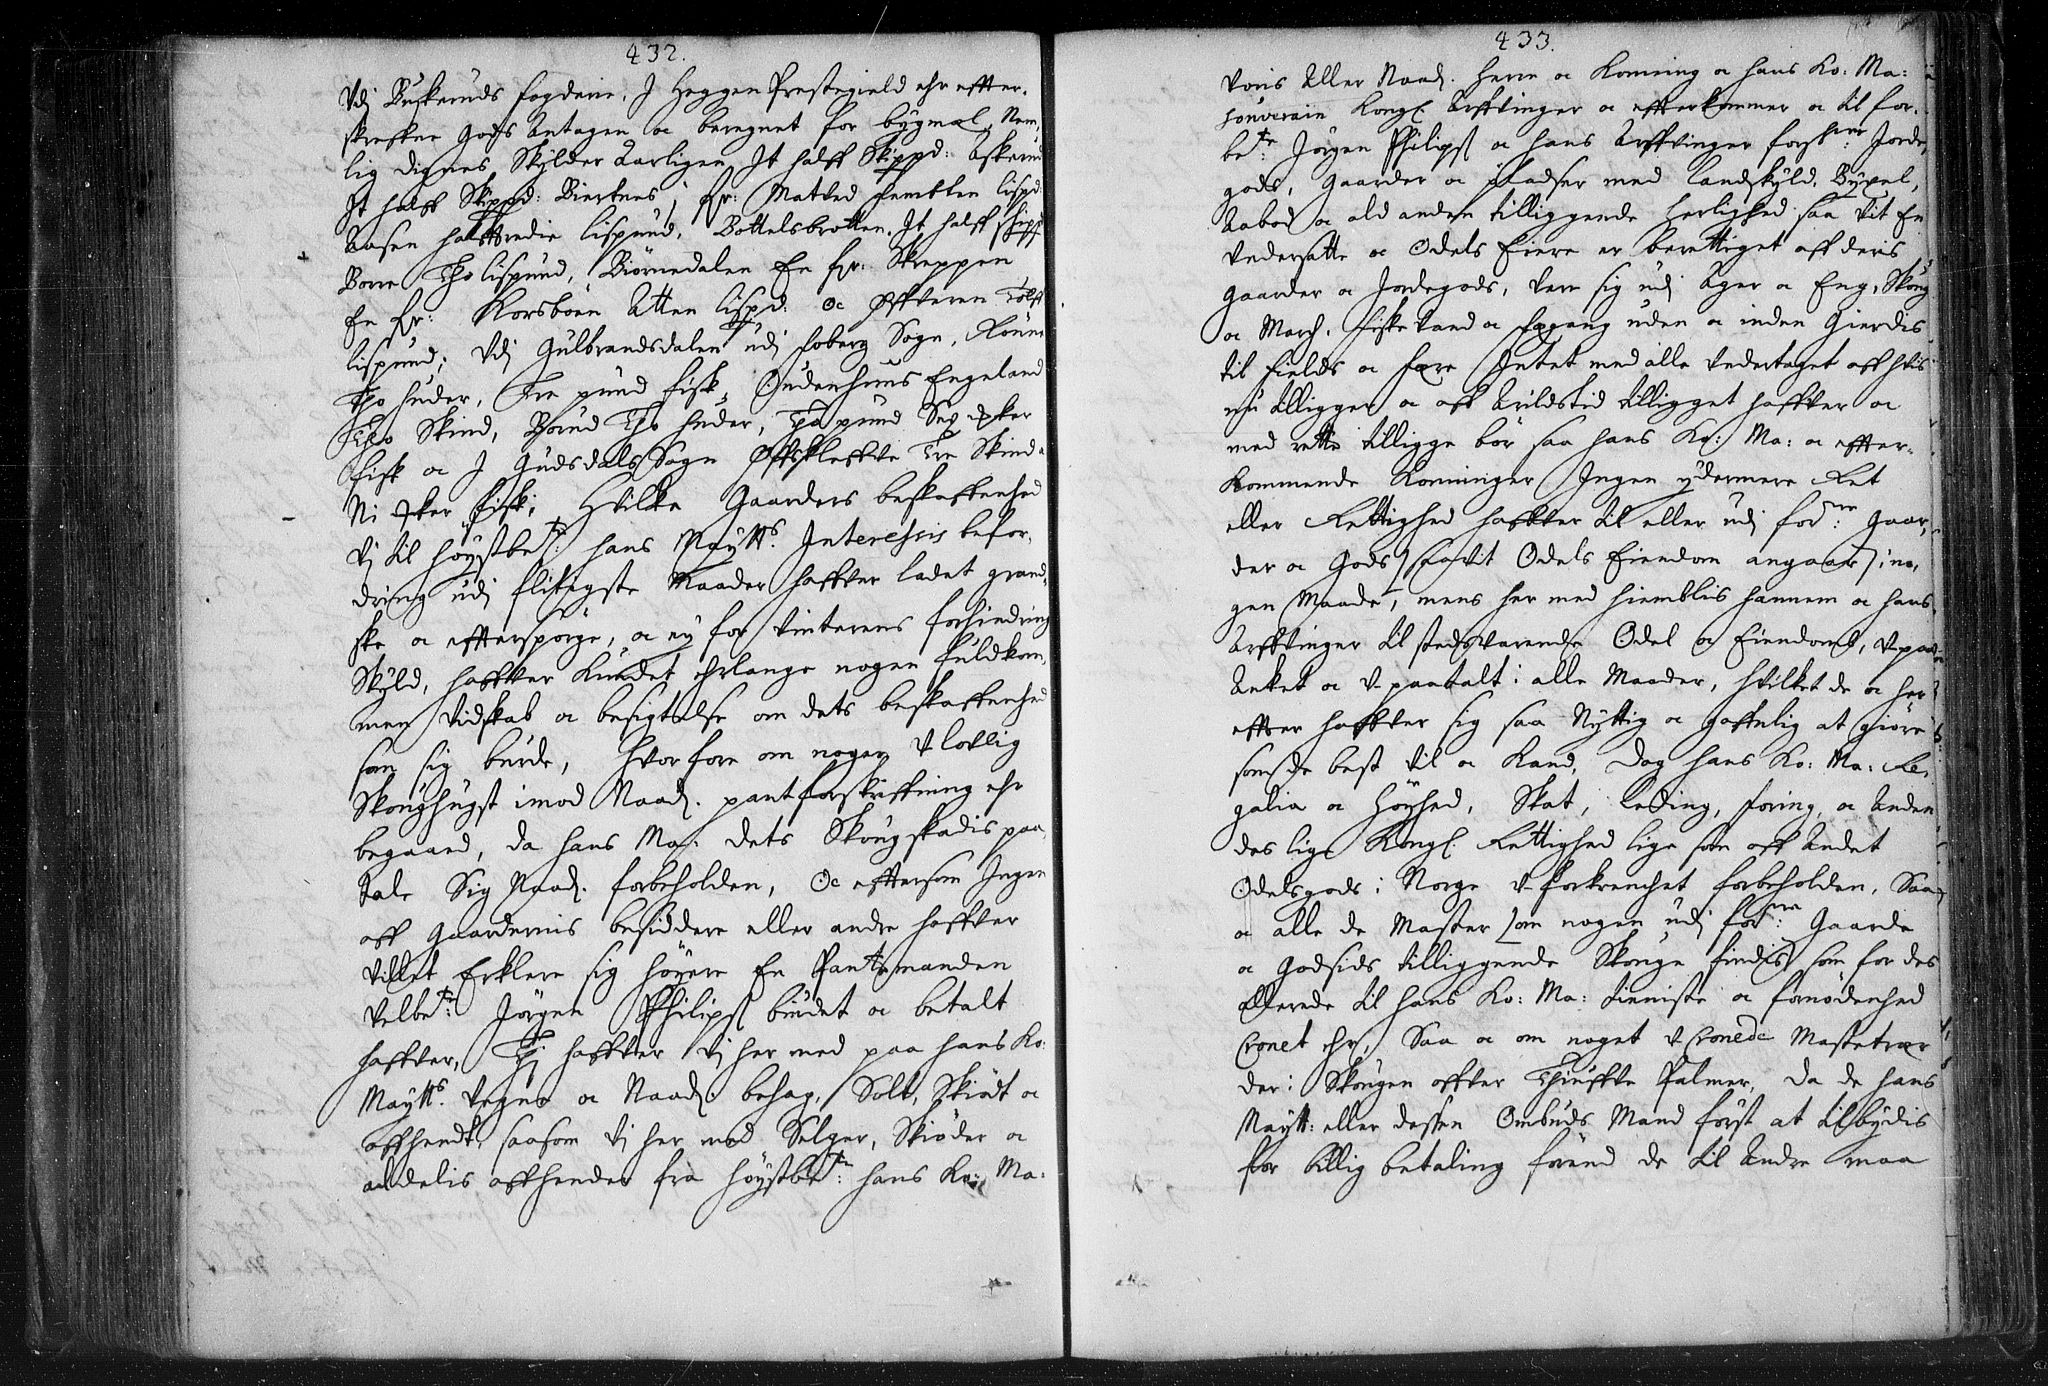 432.
Udj Buskeruds fogderie, J Heggen Prestegield ehr effter-
skrefne Gods Antagen oc beregnet for bygmal, Nem-
lig Digenes Skylder Aarligen Jt halff Skippd: Askerud
Jt halff Skippd: Biertnes j fr: Matved femtten lispd:
Aasen halffredie lispund, Bottelsbrotten Jt halff skipp
Borre Tho lispund, Biörnedalen En fr: Skreppen
En fr: Korsböen Atten lispd: oc Offveren Tolff
lispund; Udj Gulbrandsdalen udj foberg Sogn,
Tho huder, Tre pund fisk, Engeland
Tho Skind, Tho huder, Tho pund Sex Sker
fisk oc J Gudsdals Sogn Tre Skind
Ni Sker fisk; Hvilke Gaarders beskaffenhed
Vj til höystbete: hans Maytts. Interessis befor-
dring udj flitigste Maader haffver ladet grand-
ske oc efftersporge, oc ey for vinterens forhindring
Skyld, haffver kundet ehrlange nogen fuldkom-
men Vidskab oc besigtelse om dets beskaffenhed
som sig burde, Hvorfore om nogen Ulovlig
Skoughugst imod Naad. pantforskriffning ehr
begaaed, da hans Ma: dets Skougskadis paa-
tale Sig Naad. forbeholden, Oc eftersom Ingen
aff Gaardernis besiddere eller andre haffver
villet Erklere sig höyere En Pantemanden
Velbete: Jörgen Philips budet oc betalt
haffver, Thj haffver Vj her med paa hans Ko:
Maytts. Vegne oc Naad. behag, Solt, Skiödt oc
affhendt, saasom Vj her med Selger, Skiöder oc
aldelis affhender fra höystbete: hans Ko: Ma:
433.
Voris Aller Naad. Herre oc Konning oc hans Ko: Ma:
souverain Kongl Arffvinger oc efterkommer oc til for-
bete: Jörgen Philips oc hans Arffvinger forskrne: Jorde-
gods, Gaarder oc pladser med Landskyld, Byxel,
Aabod oc ald anden tilliggende Herlighed saa vit En
Undersatte oc Odels Eiere er berettiget aff deris
Gaarder oc Jordegods, Vere sig udj Ager oc Eng, Skoug
oc March, fiske Vand oc fægang uden oc inden Gierdis
til fields oc fiære Intet med alle Undertaget aff hvis
nu tilligger oc aff Arildstid tilligget haffver oc
med rette tilligge bör saa hans Ko: Ma: oc effter-
kommende Konninger Ingen ydermere Ret
eller Rettighed haffver til eller udj forne: Gaar-
der oc Gods /: saavit Odels Eiendom angaar :/ i no-
gen Maade, mens her med hiemblis hannem oc hans
Arffvinger til stedsvarende Odel oc Eiendomb, U-paa-
Anket oc U-paatalt i alle Maader, hvilket de oc her
effter haffver sig saa Nyttig oc gaffnlig at giöre
som de best vil oc kand, Dog hans Ko: Ma: Re-
galia oc Höyhed, Skat, leding, foring, oc Anden
deslige Kongl. Rettighed lige som aff Andet
Odelsgods i Norge U-forkrencket forbeholden, Saa
oc alle de Master som nogen udj forne: Gaarde
oc Godsids tilliggende Skouge findis som for des
allerede til hans Ko: Ma: tienniste oc fornödenhed
Cronet ehr, Saa oc om noget U-Cronede Mastetræer
der i Skougen offver Thiuffve Palmer, da de hans
Maytt: eller dessen Ombuds Mand först at tilbydis
for billig betaling förend de til Andre maa